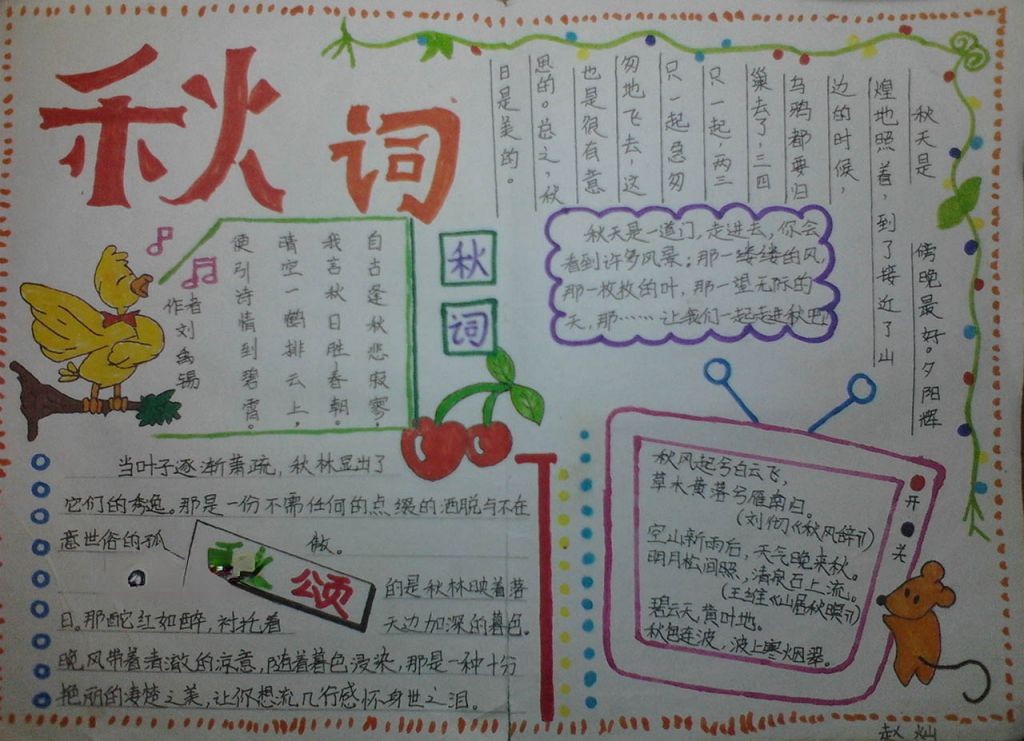 秋词
秋天是 傍晚最好。夕阳辉
煌地照着,到了接近了山
边的时候,
乌鸦都要归
巢去了,三四
只一起,两三
只一起急匆
匆地飞去,这
也是很有意
思的。总之,秋
日是美的。
自古逢秋悲寂寥,
我言秋日胜春朝。
晴空一鹤排云上,
便引诗情到碧霄。
作者刘禹锡
秋
词
秋天是一道门,走进去,你会
看到许多风景;那一缕缕的风,
那一枚枚的叶,那一望无际的
天,那……让我们一起走进秋吧
当叶子逐渐萧疏,秋林显出了
它们的秀逸。那是一份不需任何的点缀的洒脱与不在
意世俗的孤傲。
颂
的是秋林映着落
日。那酡红如醉,衬托着天边加深的暮色。
晚风带着清澈的凉意,随着暮色浸染,那是一种十分
艳丽的凄楚之美,让你想流几行感怀身世之泪。
秋风起兮白云飞,
草木黄落兮雁南归。
(刘彻《秋风辞》)
空山新雨后,天气晚来秋。
明月松间照,清泉石上流。
(王维《山居秋暝》)
碧云天,黄叶地。
秋色连波,波上寒烟翠。
开
关
赵灿